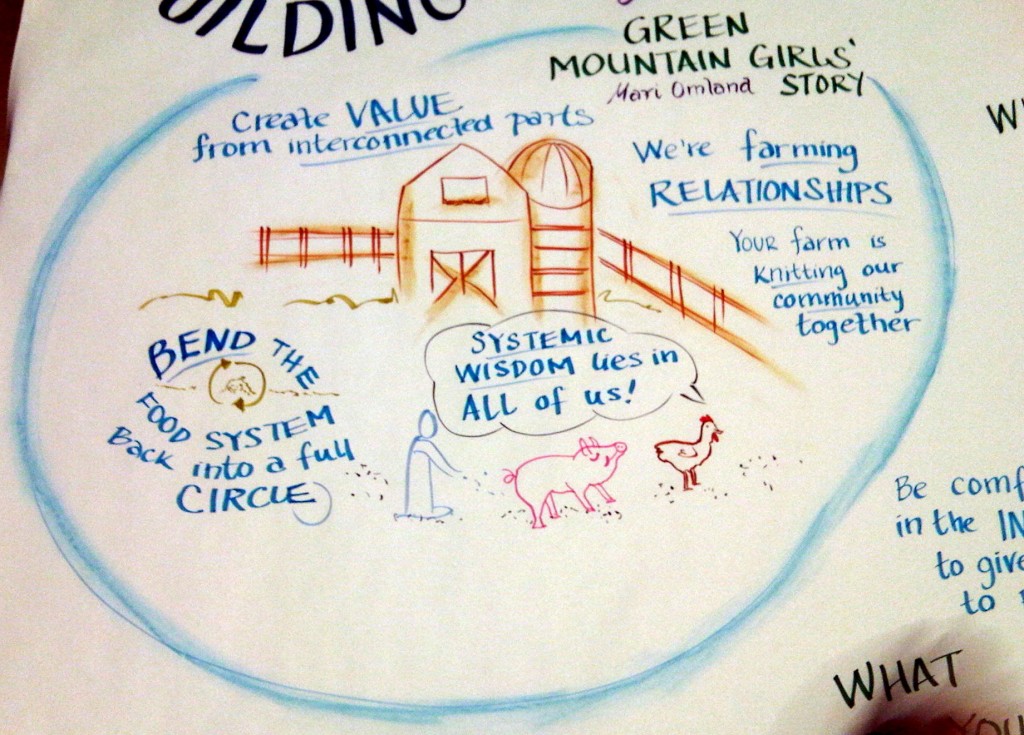 UILDING
GREEN
MOUNTAIN GIRLS'
Mari Omland STORY
Create VALUE
from interconnected parts
We're farming
RELATIONSHIPS
YOUR farm is
knitting our
community
together
BEND THE
FOOD SYSTEM
Back into a full
CIRCLE
SYSTEMIC
WISDOM lies in
ALL of us!
Be comf
in the IN
to give
to
WHAT
YOU